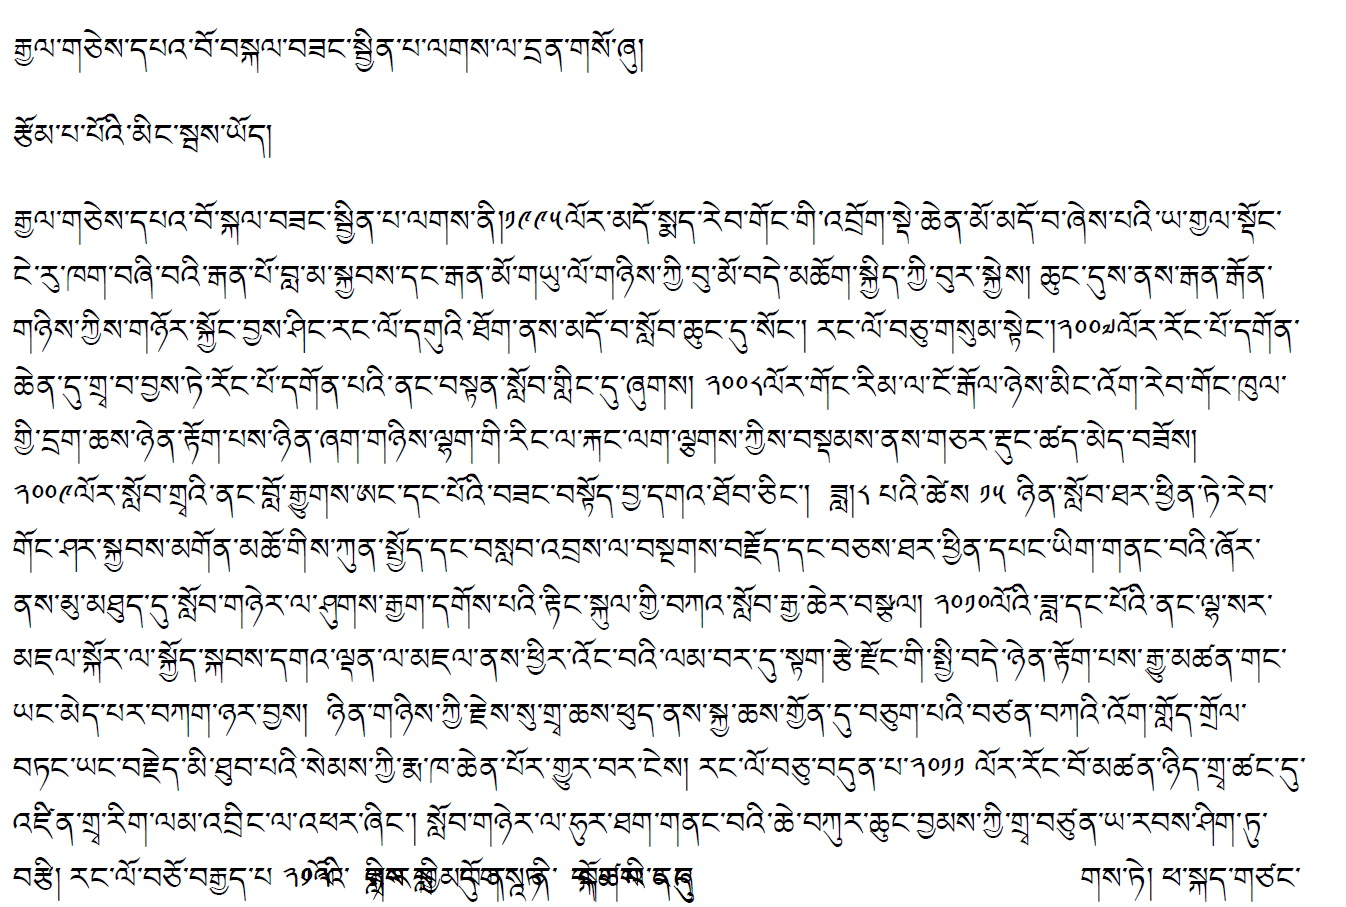 རྒྱལ་གཅེས་དཔའ་བོ་བསྐལ་བཟང་སྦྱིན་པ་ལགས་ལ་དྲན་གསོ་ཞུ།
རྩོམ་པ་པོའི་མིང་སྦས་ཡོད།
རྒྱལ་གཅེས་དཔའ་བོ་སྐལ་བཟང་སྦྱིན་པ་ལགས་ནི།༡༩༩༥ལོར་མདོ་སྨད་རེབ་གོང་གི་འབྲོག་སྡེ་ཆེན་མོ་མདོ་བ་ཞེས་པའི་ཡ་གྱལ་སྡོང་
ངེ་རུ་ཁག་བཞི་བའི་རྒན་པོ་བླ་མ་སྐྱབས་དང་རྒན་མོ་གཡུ་ལོ་གཉིས་ཀྱི་བུ་མོ་བདེ་མཆོག་སྐྱིད་ཀྱི་བུར་སྐྱེས། ཆུང་དུས་ནས་རྒན་རྒོན་
གཉིས་ཀྱིས་གཉོར་སྐྱོང་བྱས་ཤིང་རང་ལོ་དགུའི་ཐོག་ནས་མདོ་བ་སློབ་ཆུང་དུ་སོང་། རང་ལོ་བཅུ་གསུམ་སྟེང་།༢༠༠༧ལོར་རོང་པོ་དགོན་
ཆེན་དུ་གྲྭ་བ་བྱས་ཏེ་རོང་པོ་དགོན་པའི་ནང་བསྟན་སློབ་གླིང་དུ་ཞུགས། ༢༠༠༨ལོར་གོང་རིམ་ལ་ངོ་རྒོལ་ཉེས་མིང་འོག་རེབ་གོང་ཁུལ་
གྱི་དྲག་ཆས་ཉེན་རྟོག་པས་ཉིན་ཞག་གཉིས་ལྷག་གི་རིང་ལ་རྐང་ལག་ལྕགས་ཀྱིས་བསྡམས་ནས་གཅར་རྡུང་ཚད་མེད་བཟོས།
༢༠༠༩ལོར་སློབ་གྲྭའི་ནང་བློ་རྒྱུགས་ཨང་དང་པོའི་བཟང་བསྟོད་བྱ་དགའ་ཐོབ་ཅིང་། ཟླ།༨ པའི་ཚེས ༡༥ ཉིན་སློབ་ཐར་ཕྱིན་ཏེ་རེབ་
གོང་ཤར་སྐྱབས་མགོན་མཆོ་གིས་ཀུན་སྤྱོད་དང་བསླབ་འབྲས་ལ་བསྔགས་བརྗོད་དང་བཅས་ཐར་ཕྱིན་དཔང་ཡིག་གནང་བའི་ཞོར་
ནས་མུ་མཐུད་དུ་སློབ་གཉེར་ལ་ཤུགས་རྒྱག་དགོས་པའི་རྟིང་སྐུལ་གྱི་བཀའ་སློབ་རྒྱ་ཆེར་བསྩལ། ༢༠༡༠ལོའི་ཟླ་དང་པོའི་ནང་ལྷ་སར་
མཇལ་སྐོར་ལ་སྐྱོད་སྐབས་དགའ་ལྡན་ལ་མཇལ་ནས་ཕྱིར་འོང་བའི་ལམ་བར་དུ་སྟག་རྩེ་རྫོང་གི་སྤྱི་བདེ་ཉེན་རྟོག་པས་རྒྱུ་མཚན་གང་
ཡང་མེད་པར་བཀག་ཉར་བྱས། ཉིན་གཉིས་ཀྱི་རྗེས་སུ་གྲྭ་ཆས་ཕུད་ནས་སྐྱ་ཆས་གྱོན་དུ་བཅུག་པའི་བཙན་བཀའི་འོག་གློད་གྲོལ་
བཏང་ཡང་བརྗེད་མི་ཐུབ་པའི་སེམས་ཀྱི་རྨ་ཁ་ཆེན་པོར་གྱུར་བར་ངེས། རང་ལོ་བཅུ་བདུན་པ་༢༠༡༡ ལོར་རོང་བོ་མཚན་ཉིད་གྲྭ་ཚང་དུ་
འཛིན་གྲྭ་རིག་ལམ་འབྲིང་ལ་འཕར་ཞིང་། སློབ་གཉེར་ལ་ཧུར་ཐག་གནང་བའི་ཆེ་བཀུར་ཆུང་བྱམས་ཀྱི་གྲྭ་བཙུན་ཡ་རབས་ཤིག་ཏུ་
བརྩི། རང་ལོ་བཅོ་བརྒྱད་པ གས་ཏེ། ཕ་སྐད་གཙང་